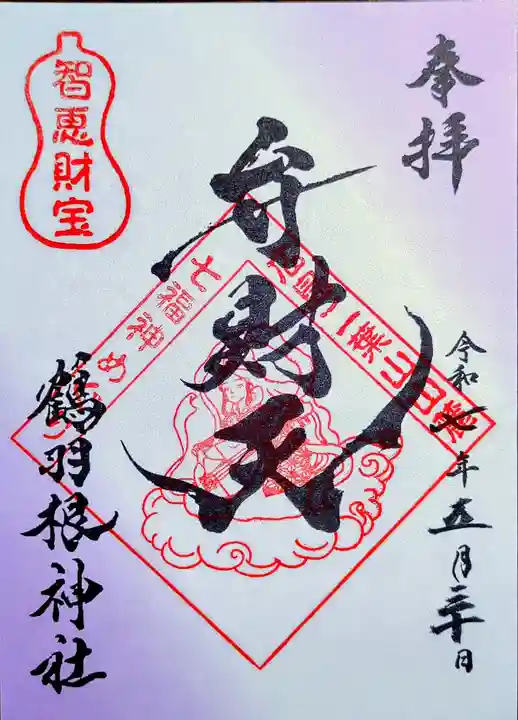 奉拝
令和七年五月三十日
弁財天
智恵財宝
七福神め
二葉山山麓
鶴羽根神社